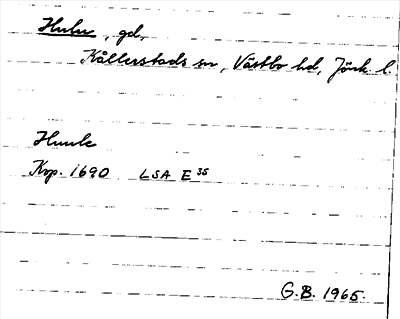 Hulu, gd,
Kållerstads sn, Västbo hd, Jönk. l.
Huule
Kop. 1690 LSA E 35
G.B. 1965.